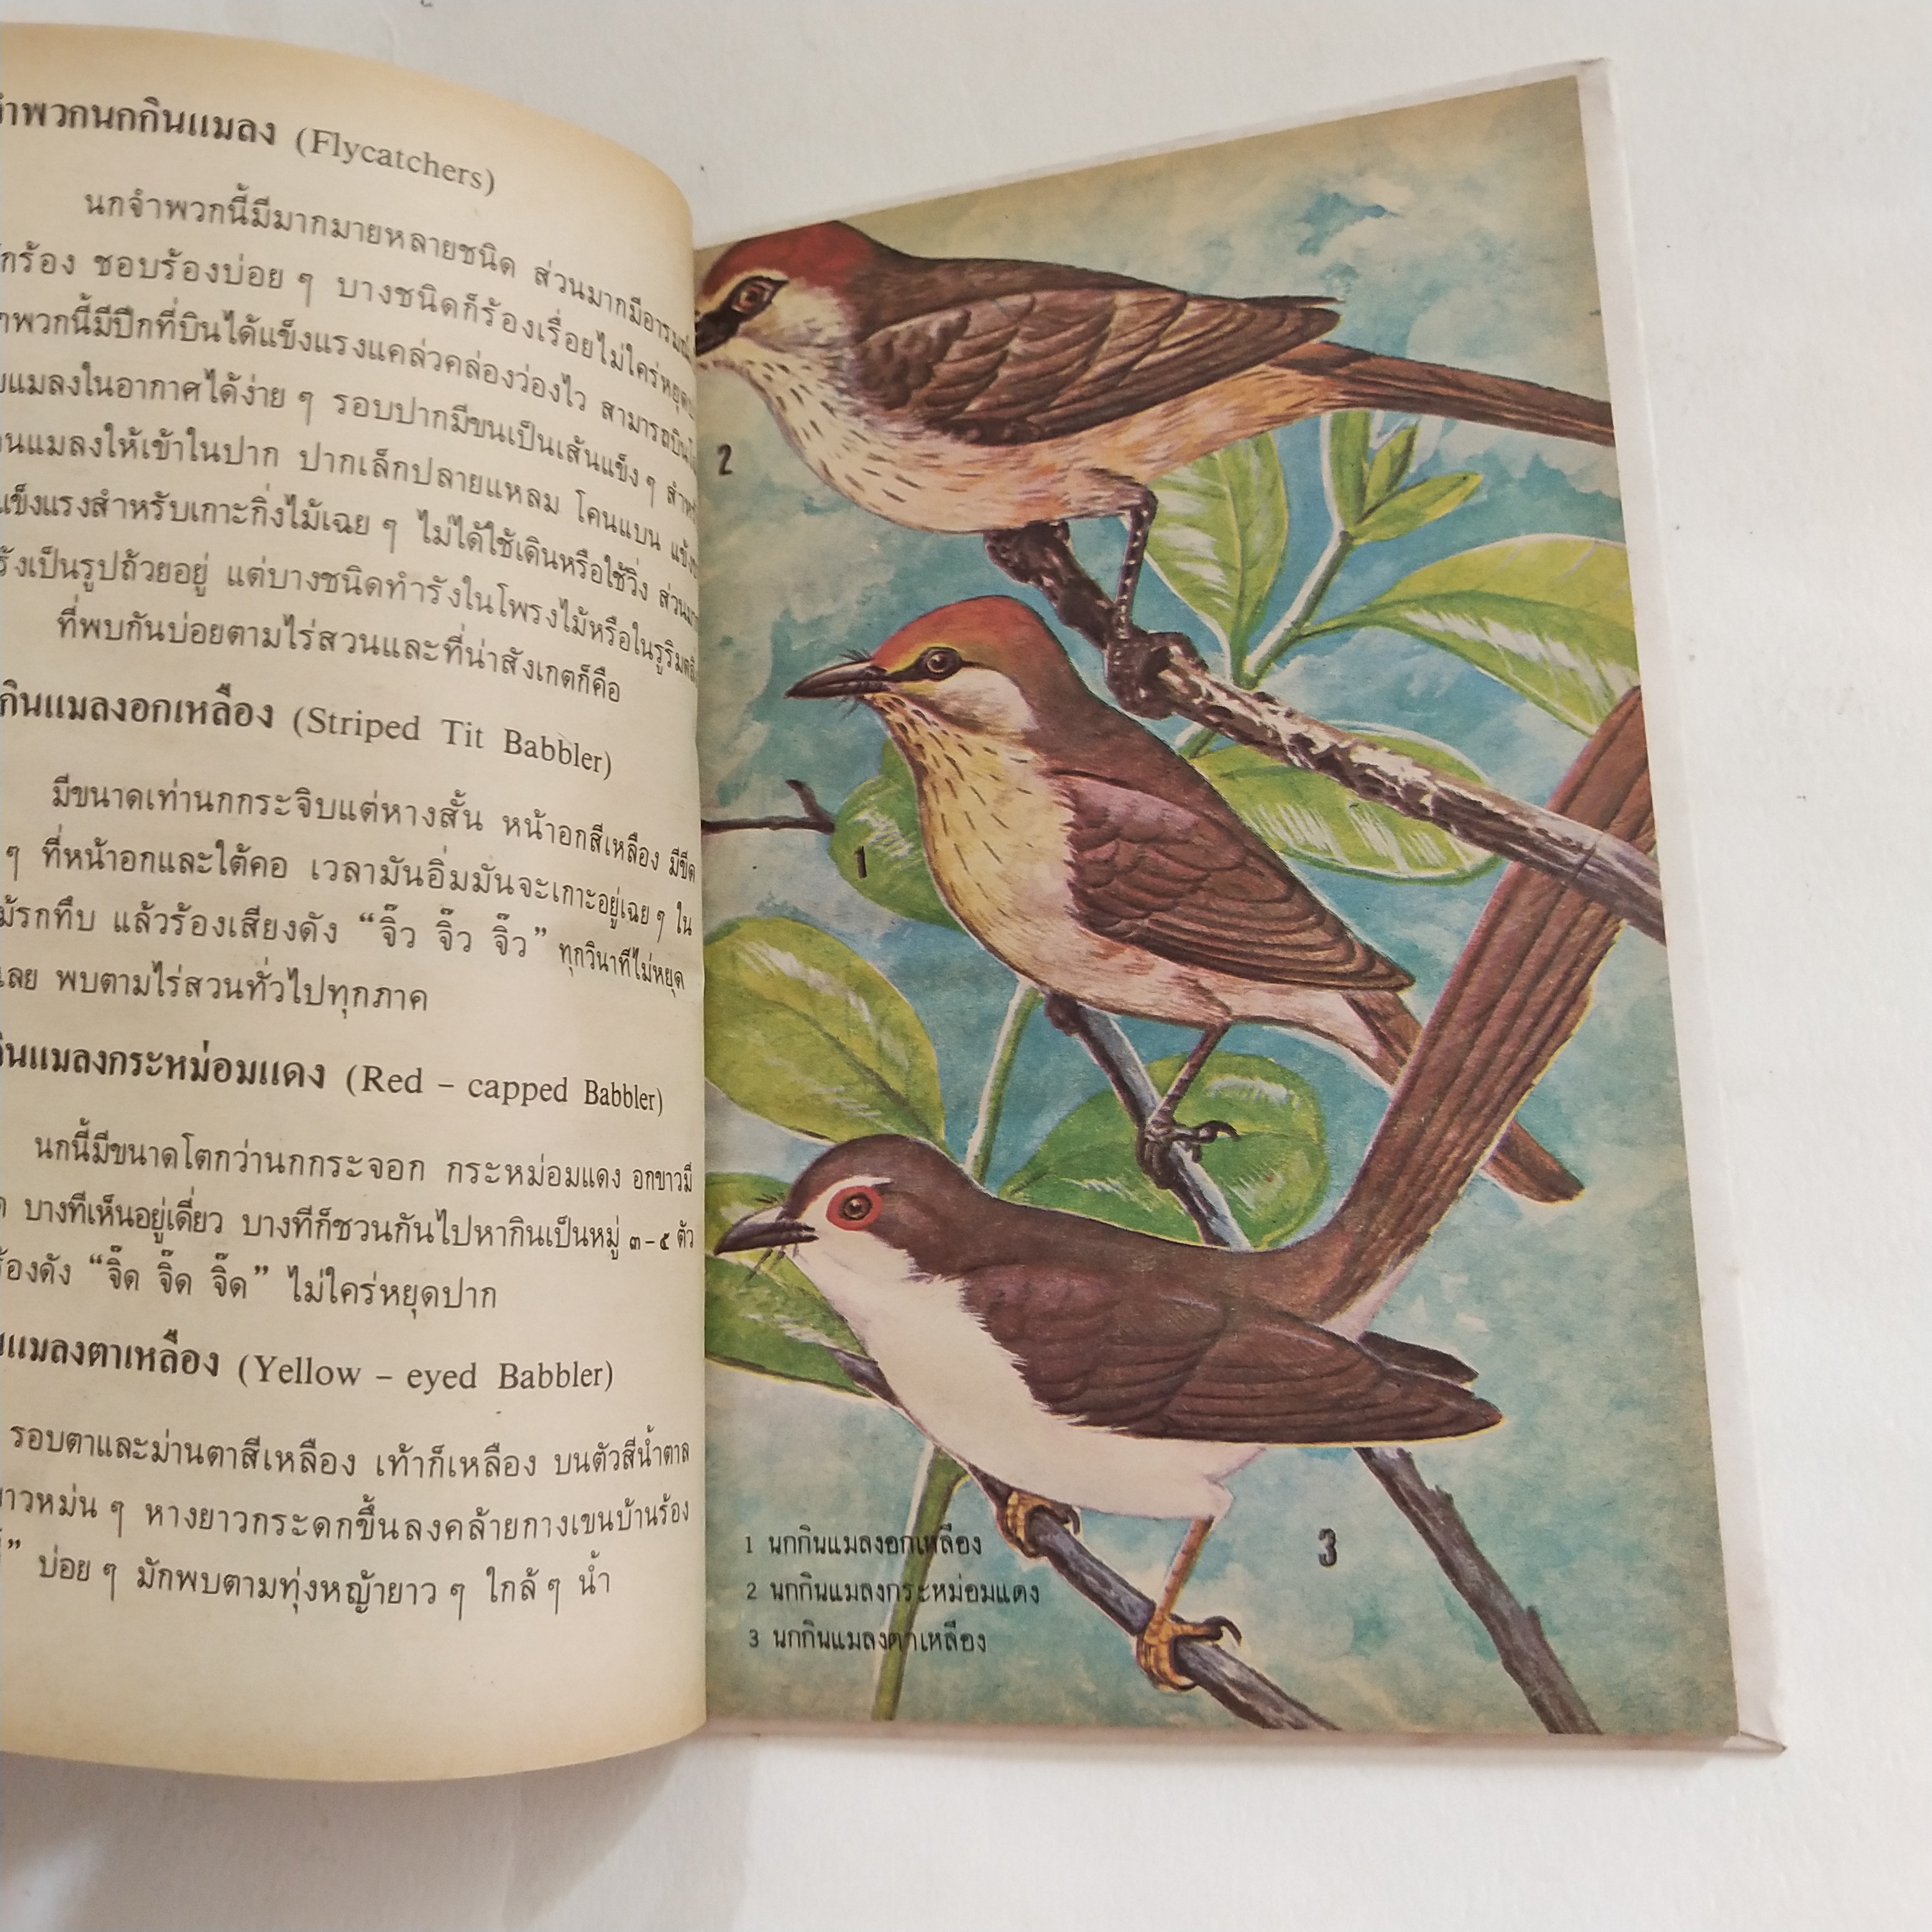 จำพวกนกกินแมลง (Flycatchers)
นกจำพวกนี้มีมากมายหลายชนิด ส่วนมากมีอารมณ์
ร้อง ชอบร้องบ่อย ๆ บางชนิดก็ร้องเรื่อยไม่ใคร่หยุด
พวกนี้มีปีกที่บินได้แข็งแรงแคล่วคล่องว่องไว สามารถบิน
แมลงในอากาศได้ง่าย ๆ รอบปากมีขนเป็นเส้นแข็ง ๆ
แมลงให้เข้าในปาก ปากเล็กปลายแหลม โคนแบน
แข็งแรงสำหรับเกาะกิ่งไม้เฉย ๆ ไม่ได้ใช้เดินหรือใช้วิ่ง
รังเป็นรูปถ้วยอยู่ แต่บางชนิดทำรังในโพรงไม้หรือในรูริม
ที่พบกันบ่อยตามไร่สวนและที่น่าสังเกตก็คือ
กินแมลงอกเหลือง (Striped Tit Babbler)
มีขนาดเท่านกกระจิบแต่หางสั้น หน้าอกสีเหลือง มีขีด
ๆ ที่หน้าอกและใต้คอ เวลามันอิ่มมันจะเกาะอยู่เฉย ๆ ใน
รกทึบ แล้วร้องเสียงดัง “จิ๊ว จิ๊ว จิ๊ว” ทุกวินาทีไม่หยุด
เลย พบตามไร่สวนทั่วไปทุกภาค
กินแมลงกระหม่อมแดง (Red – capped Babbler)
นกนี้มีขนาดโตกว่านกกระจอก กระหม่อมแดง อกขาวมี
บางทีเห็นอยู่เดี่ยว บางทีก็ชวนกันไปหากินเป็นหมู่ ๓–๕ ตัว
ร้องดัง “จิ๊ด จิ๊ด จิ๊ด” ไม่ใคร่หยุดปาก
แมลงตาเหลือง (Yellow – eyed Babbler)
รอบตาและม่านตาสีเหลือง เท้าก็เหลือง บนตัวสีน้ำตาล
ขาวหม่น ๆ หางยาวกระดกขึ้นลงคล้ายกางเขนบ้านร้อง
” บ่อย ๆ มักพบตามทุ่งหญ้ายาว ๆ ใกล้ ๆ น้ำ
2
1
3
1 นกกินแมลงอกเหลือง
2 นกกินแมลงกระหม่อมแดง
3 นกกินแมลงตาเหลือง